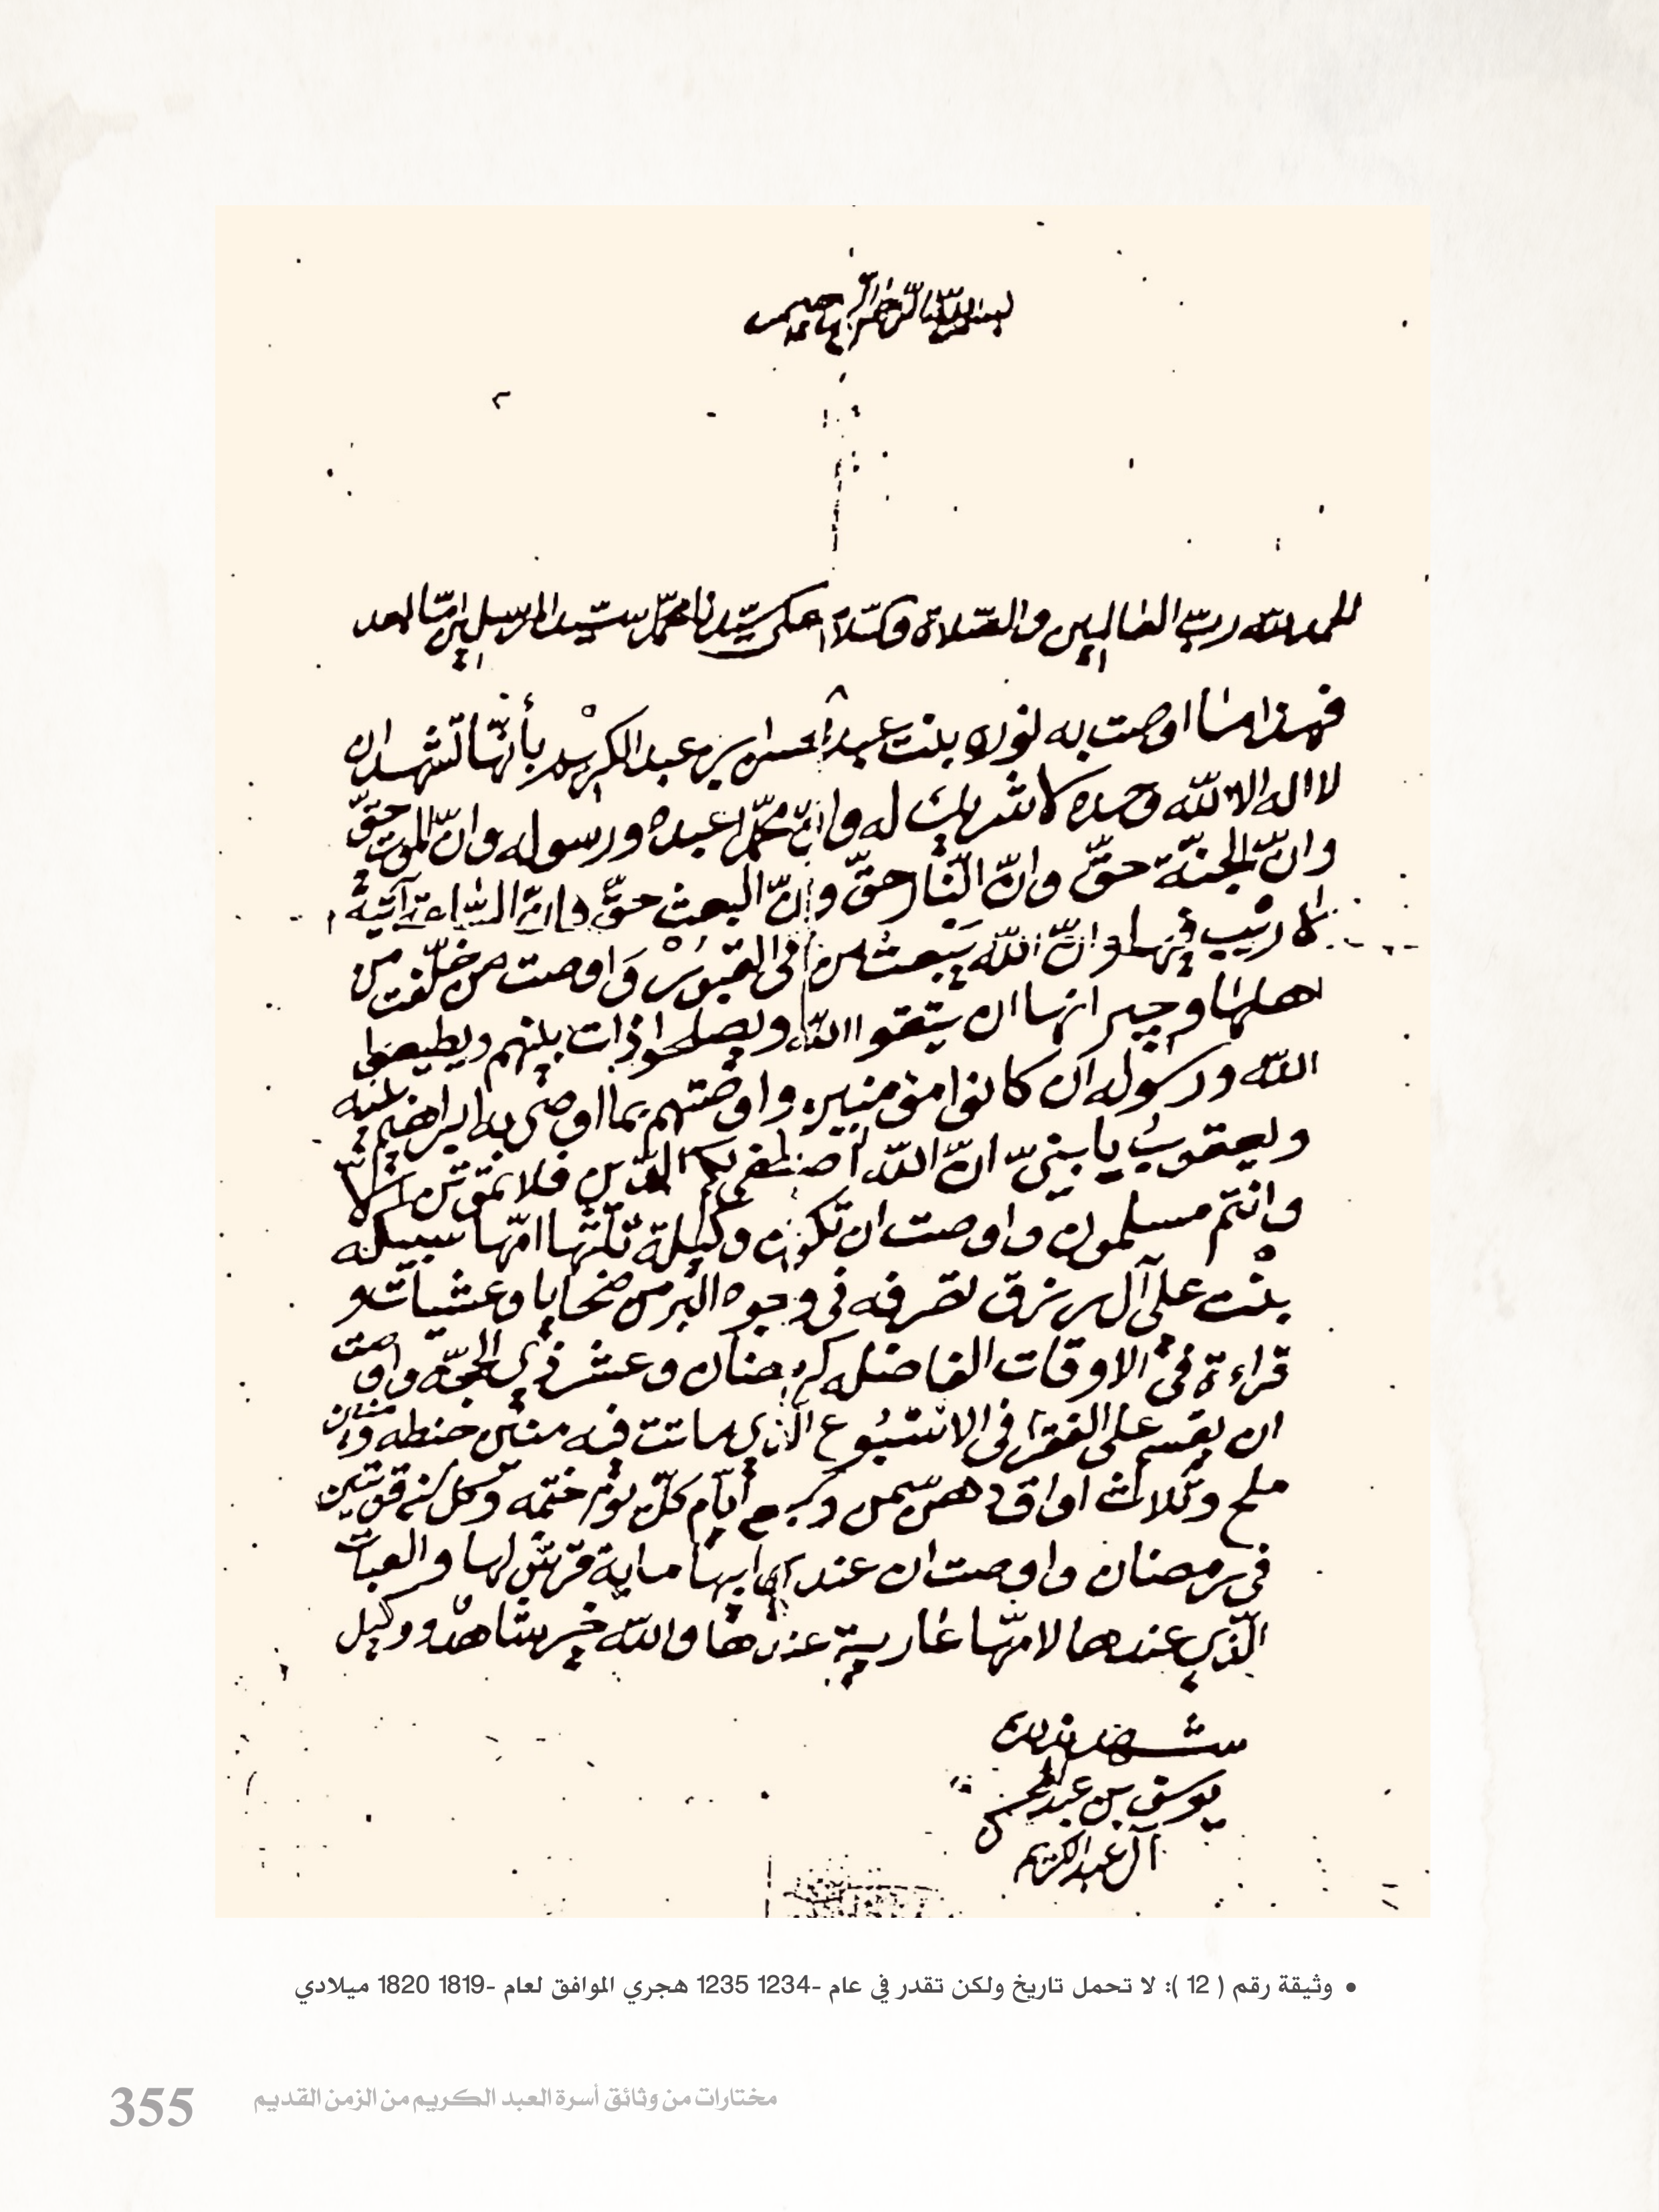 بسم الله الرحمن الرحيم
الحمد لله ربّ العالمين والصّلاة والسّلام على سيّدنا محمّد سيّد المرسلين امّا بعد
فهذا ما اوصت به نوره بنت عبد المحسن بن عبد الكريم بأنّها تشهد ان
لا اله الا الله وحده لا شريك له وانّ محمّدا عبده ورسوله وانّ الموت حقّ
وانّ الجنّة حقّ وانّ النّار حقّ وانّ البعث حقّ وانّ السّاعة آتية
لا ريْب فيها وانّ الله يَبعثُ من في القبورْ وَاوصت من خلّفت من
اهلها وجيرانها ان يتّقوا الله ويصلحوا ذات بينهم ويطيعوا
الله ورسوله ان كانوا مؤمنين واوصتهم بما اوصى به ابراهيم بنيه
ويعقوبُ يا بنيّ انّ الله اصْطفى لكم الدّين فلا تموتنّ الا
وانتم مسلمون واوصت ان تكون وكيلة ثلثها امّها سبيكه
بنْت علي آل رزق تصرفه في وجوه البر من ضحايا وعشيات و
قراءة في الاوقات الفاضله كرمضان وعشر ذي الحجّه واوصت
ان يقسم على الفقرا في الاسْبُوع الّذي ماتت فيه منين حنطه
ملح وثلاث اواق دهن سمن ايّام كلّ يوم ختمه وكل
في رمضان واوصت ان عند ابيها ماية قرش لها والعبات
الّذي عندها لامّها عارية عندها والله خير شاهد ووكيل
شهد بذلك
يوسف بن عبد المحسن
آل عبد الكريم
• وثيقة رقم ( 12 ): لا تحمل تاريخ ولكن تقدر في عام -1234 1235 هجري الموافق لعام -1819 1820 ميلادي
مختارات من وثائق أسرة العبد الكريم من الزمن القديم
355